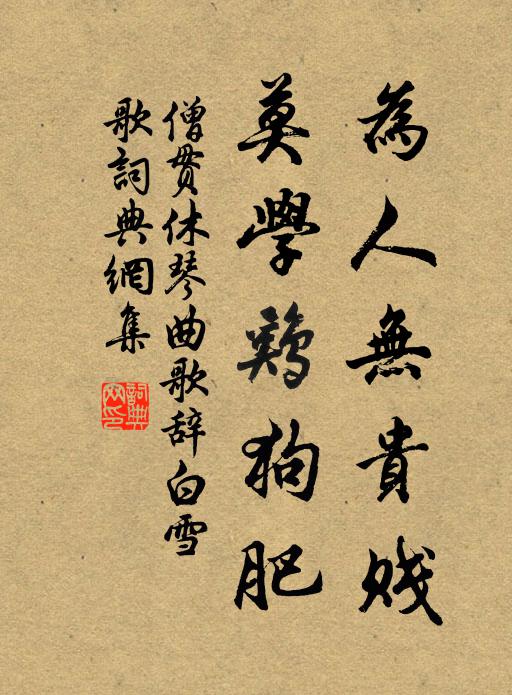 為人無貴賤
莫學鷄狗肥
僧贯休琴曲歌辞白雪
歌詞典網集
詞典網印